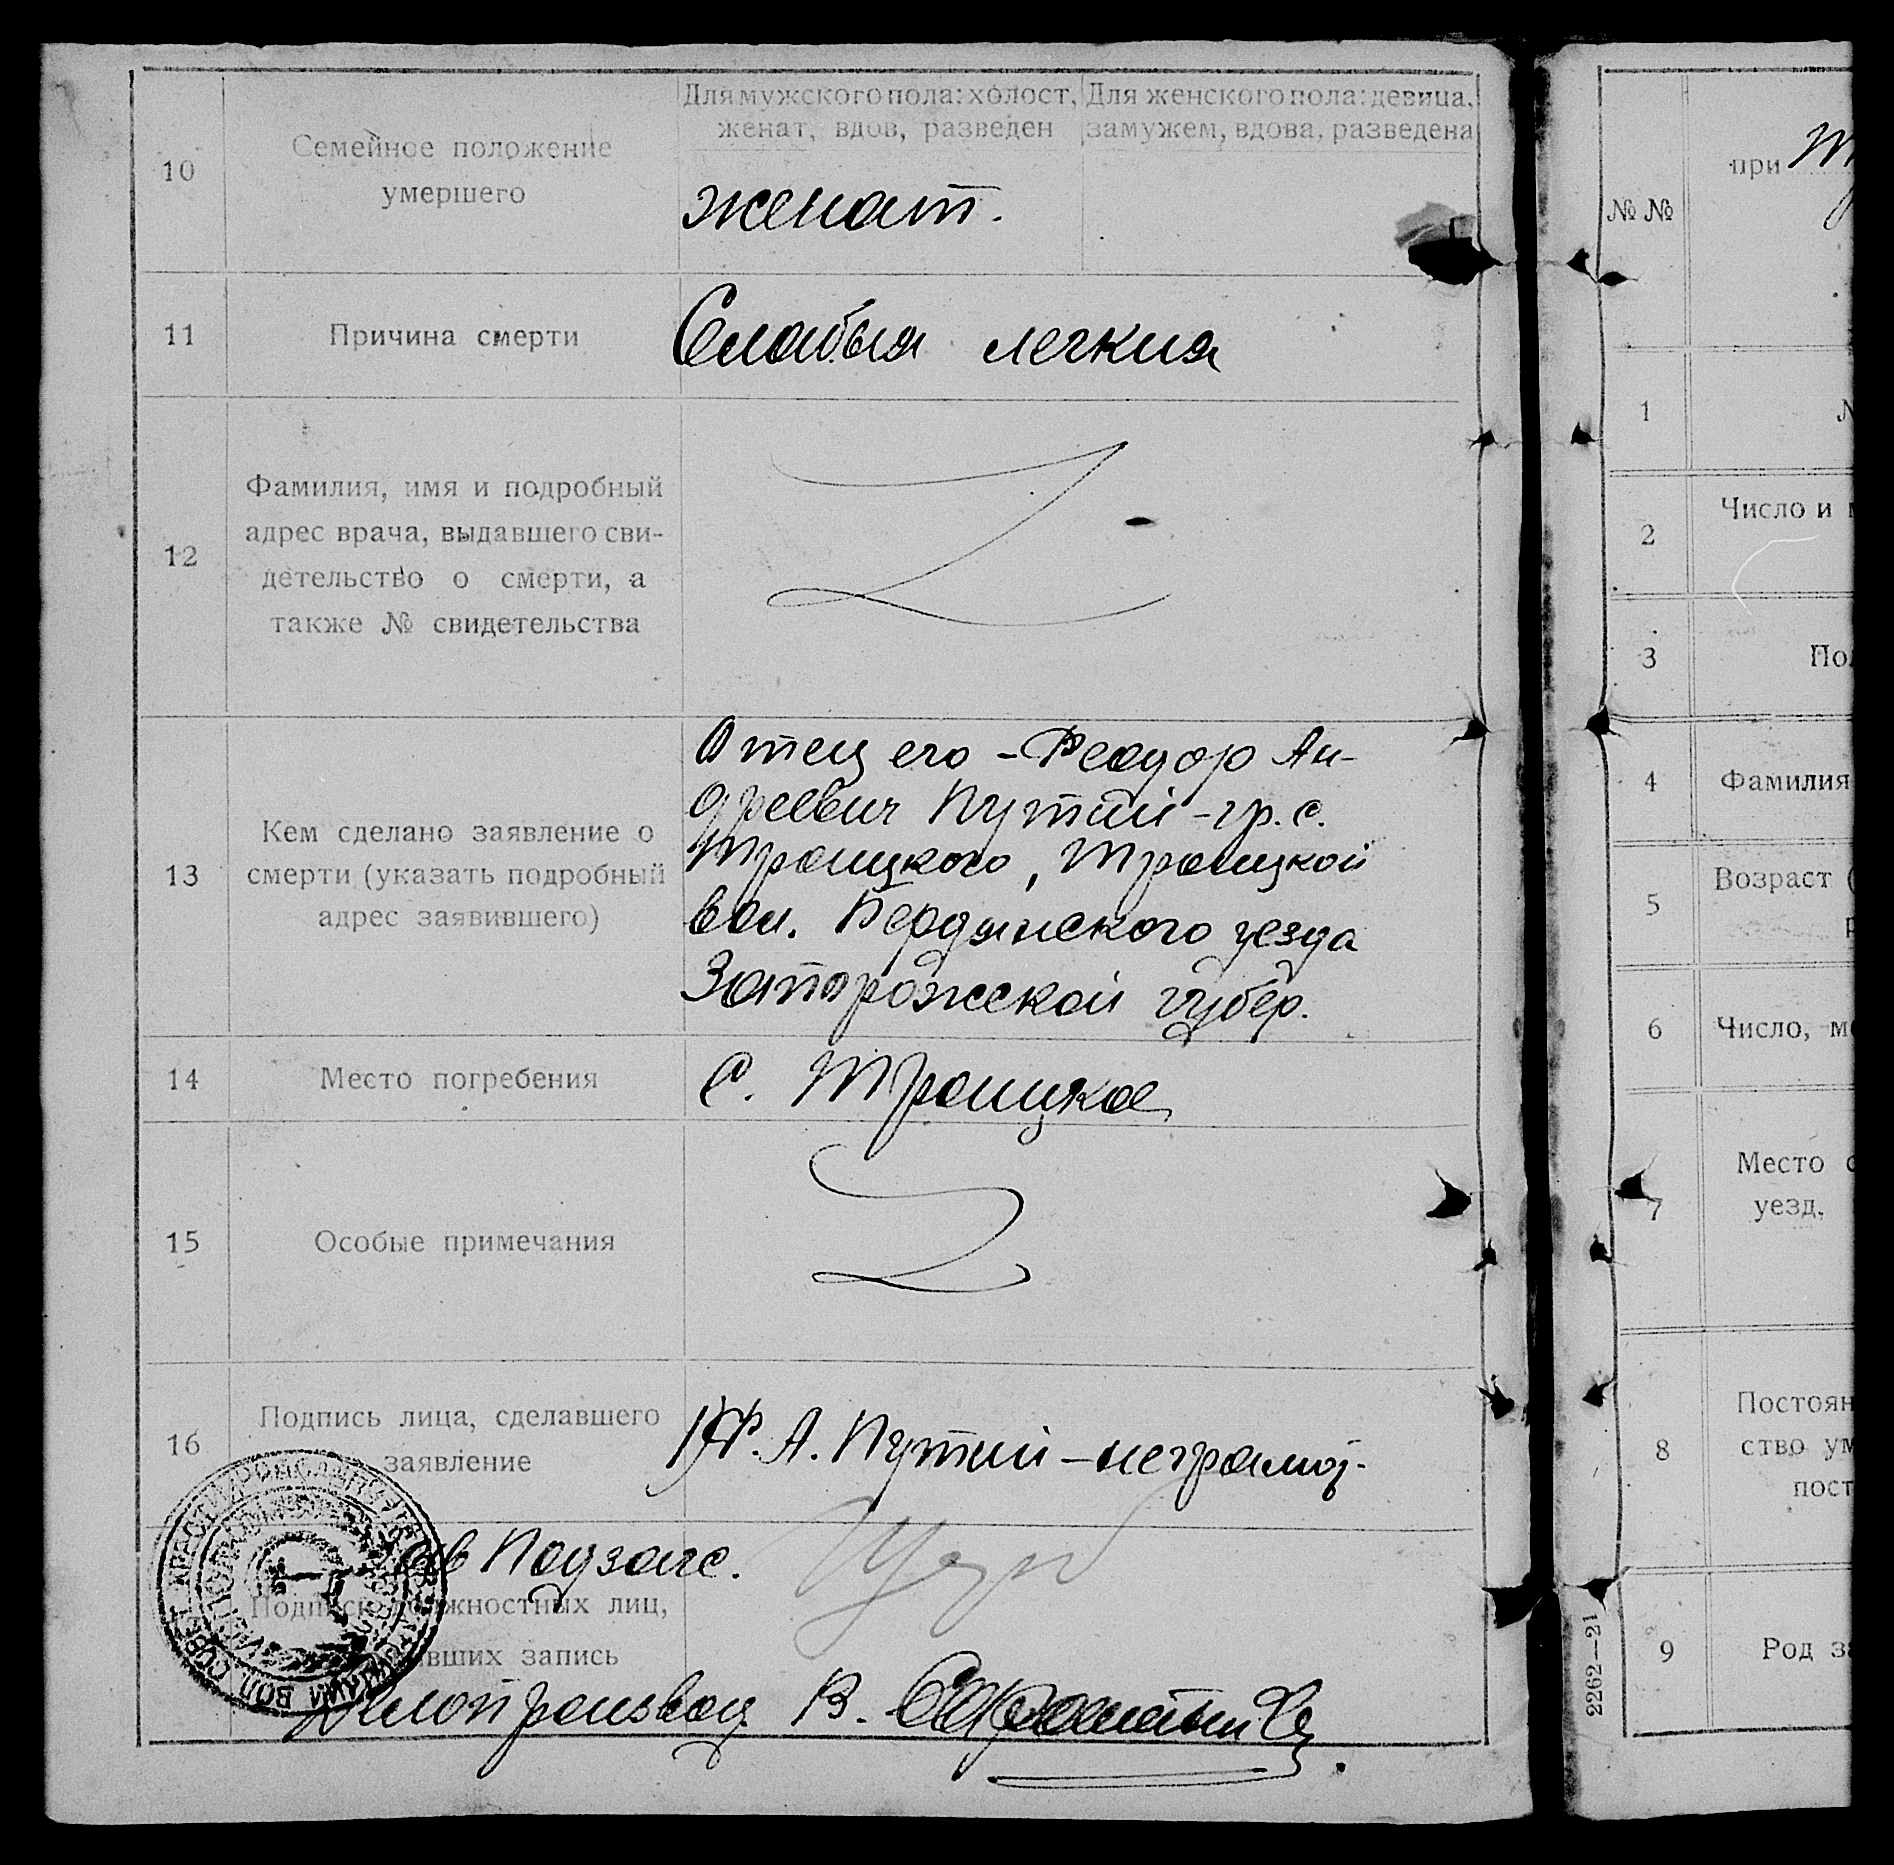 Для мужского пола: холост, женат, вдов, разведен
Для женского пола: девица, замужем, вдова, разведена
10
Семейное положение
умершего
женат.
11
Причина смерти
Слабыя легкия
12
Фамилия, имя и подробный
адрес врача, выдавшего сви-
детельство о смерти, а
также № свидетельства
13
Кем сделано заявление о
смерти (указать подробный
адрес заявившего)
Отец его - Феодор Ан-
дреевич Путий - гр. с.
Троицкого, Троицкой
вол. Бердянского уезда
Запорожской губер.
14
Место погребения
С. Троицкое
15
Особые примечания
16
Подпись лица, сделавшего
заявление
Ф. А. Путий - неграмот.
Зав Подзагс.
Подписи должностных лиц,
запись
Делопроизвод. В.
при
№ №
1
2
Число и
3
4
Фамилия
5
Возраст (
6
Число,
7
Место
уезд,
8
9
Род
2262—21